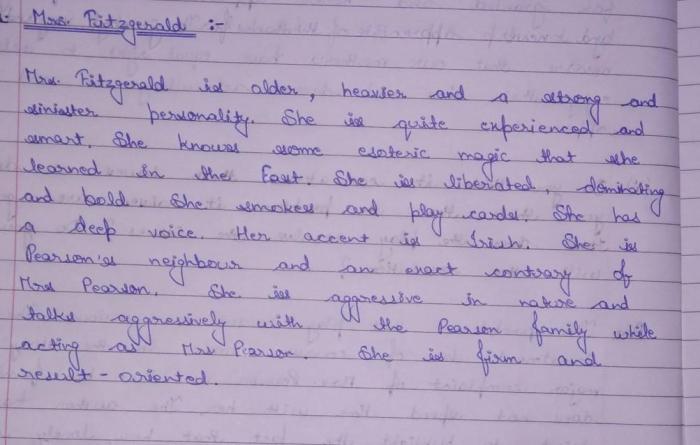 Mrs. Fitzgerald :-
Mrs. Fitzgerald is older, heavier and a strong and
sinister personality. She is quite experienced and
smart. She knows some esoteric magic that she
learned in the East. She is liberated, dominating
and bold. She smokes, and play cards. She has
a deep voice. Her accent is Irish. She is
Pearson's neighbour and an exact contrary of
Mrs Pearson. She is aggressive in nature and
talks aggressively with the Pearson family while
acting as Mrs Pearson. She is firm and
result-oriented.